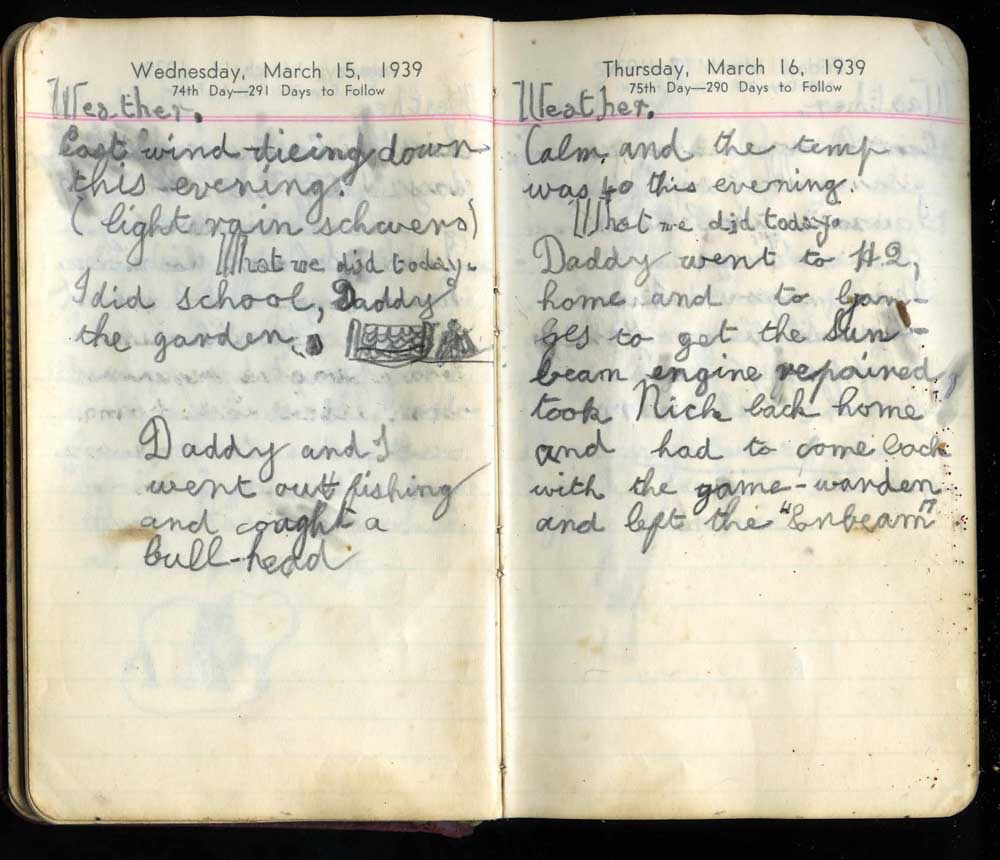 Wednesday, March 15, 1939
74th Day—291 Days to Follow
Weather.
East wind dieing down
this evening.
(light rain schwers)
What we did today.
I did school, Daddy
the garden.
Daddy and I
went out fishing
and caught a
bull-head
Thursday, March 16, 1939
75th Day—290 Days to Follow
Weather.
Calm, and the temp
was 40 this evening.
What we did today.
Daddy went to H.Q,
home and to Gan-
ges to get the Sun-
beam engine repaired,
took Nick back home
and had to come back
with the game-warden
and left the